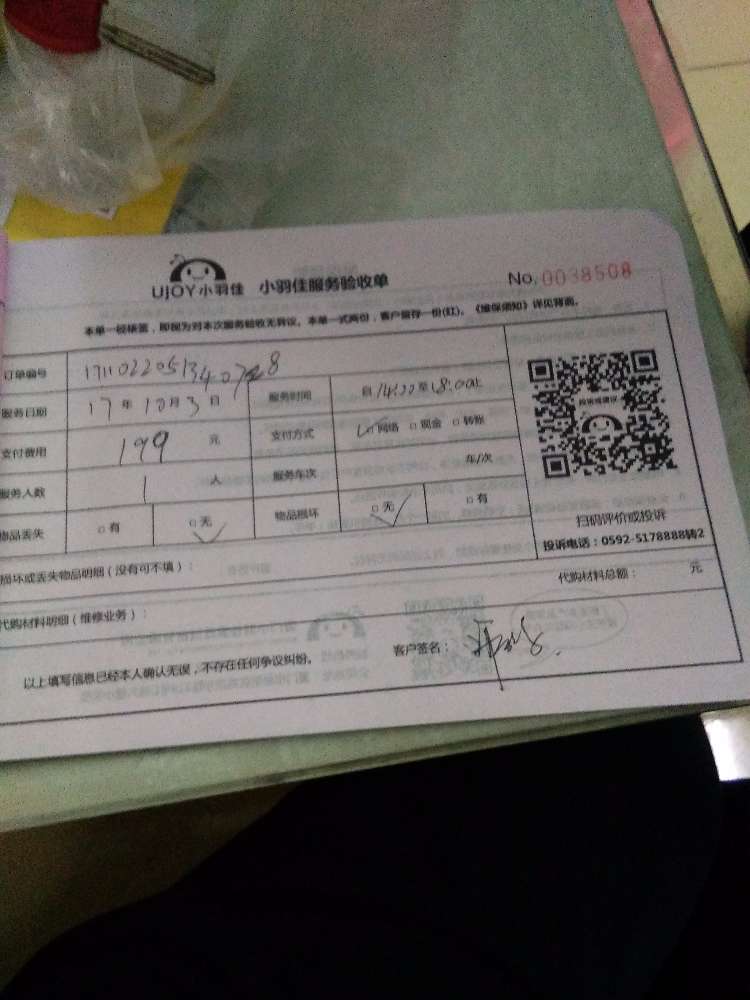 UJOY小羽佳 小羽佳服务验收单 No. 0038508
本单一经核签，即视为对本次服务验收无异议。本单一式两份，客户留存一份(红)。《维保须知》详见背面。
订单编号
服务日期 17年10月3日 服务时间 自14:00至18:00止
支付费用 199元 支付方式 □网络 □现金 □转账
服务人数 1人 服务车次 车/次
物品丢失 □有 □无 物品损坏 □无 □有
扫码评价或投诉
投诉电话：0592-5178888转2
损坏或丢失物品明细（没有可不填）：
代购材料明细（维修业务）： 代购材料总额： 元
以上填写信息已经本人确认无误，不存在任何争议纠纷。 客户签名：